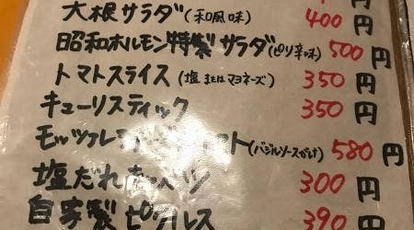 大根サラダ(和風味) 400円
昭和ホルモン特製サラダ(ピリ辛味) 500円
トマトスライス(塩またはマヨネーズ) 350円
キューリスティック 350円
モッツァレラ ト(バジルソースがけ) 580円
塩だれキャベツ 300円
自家製ピクルス 390円